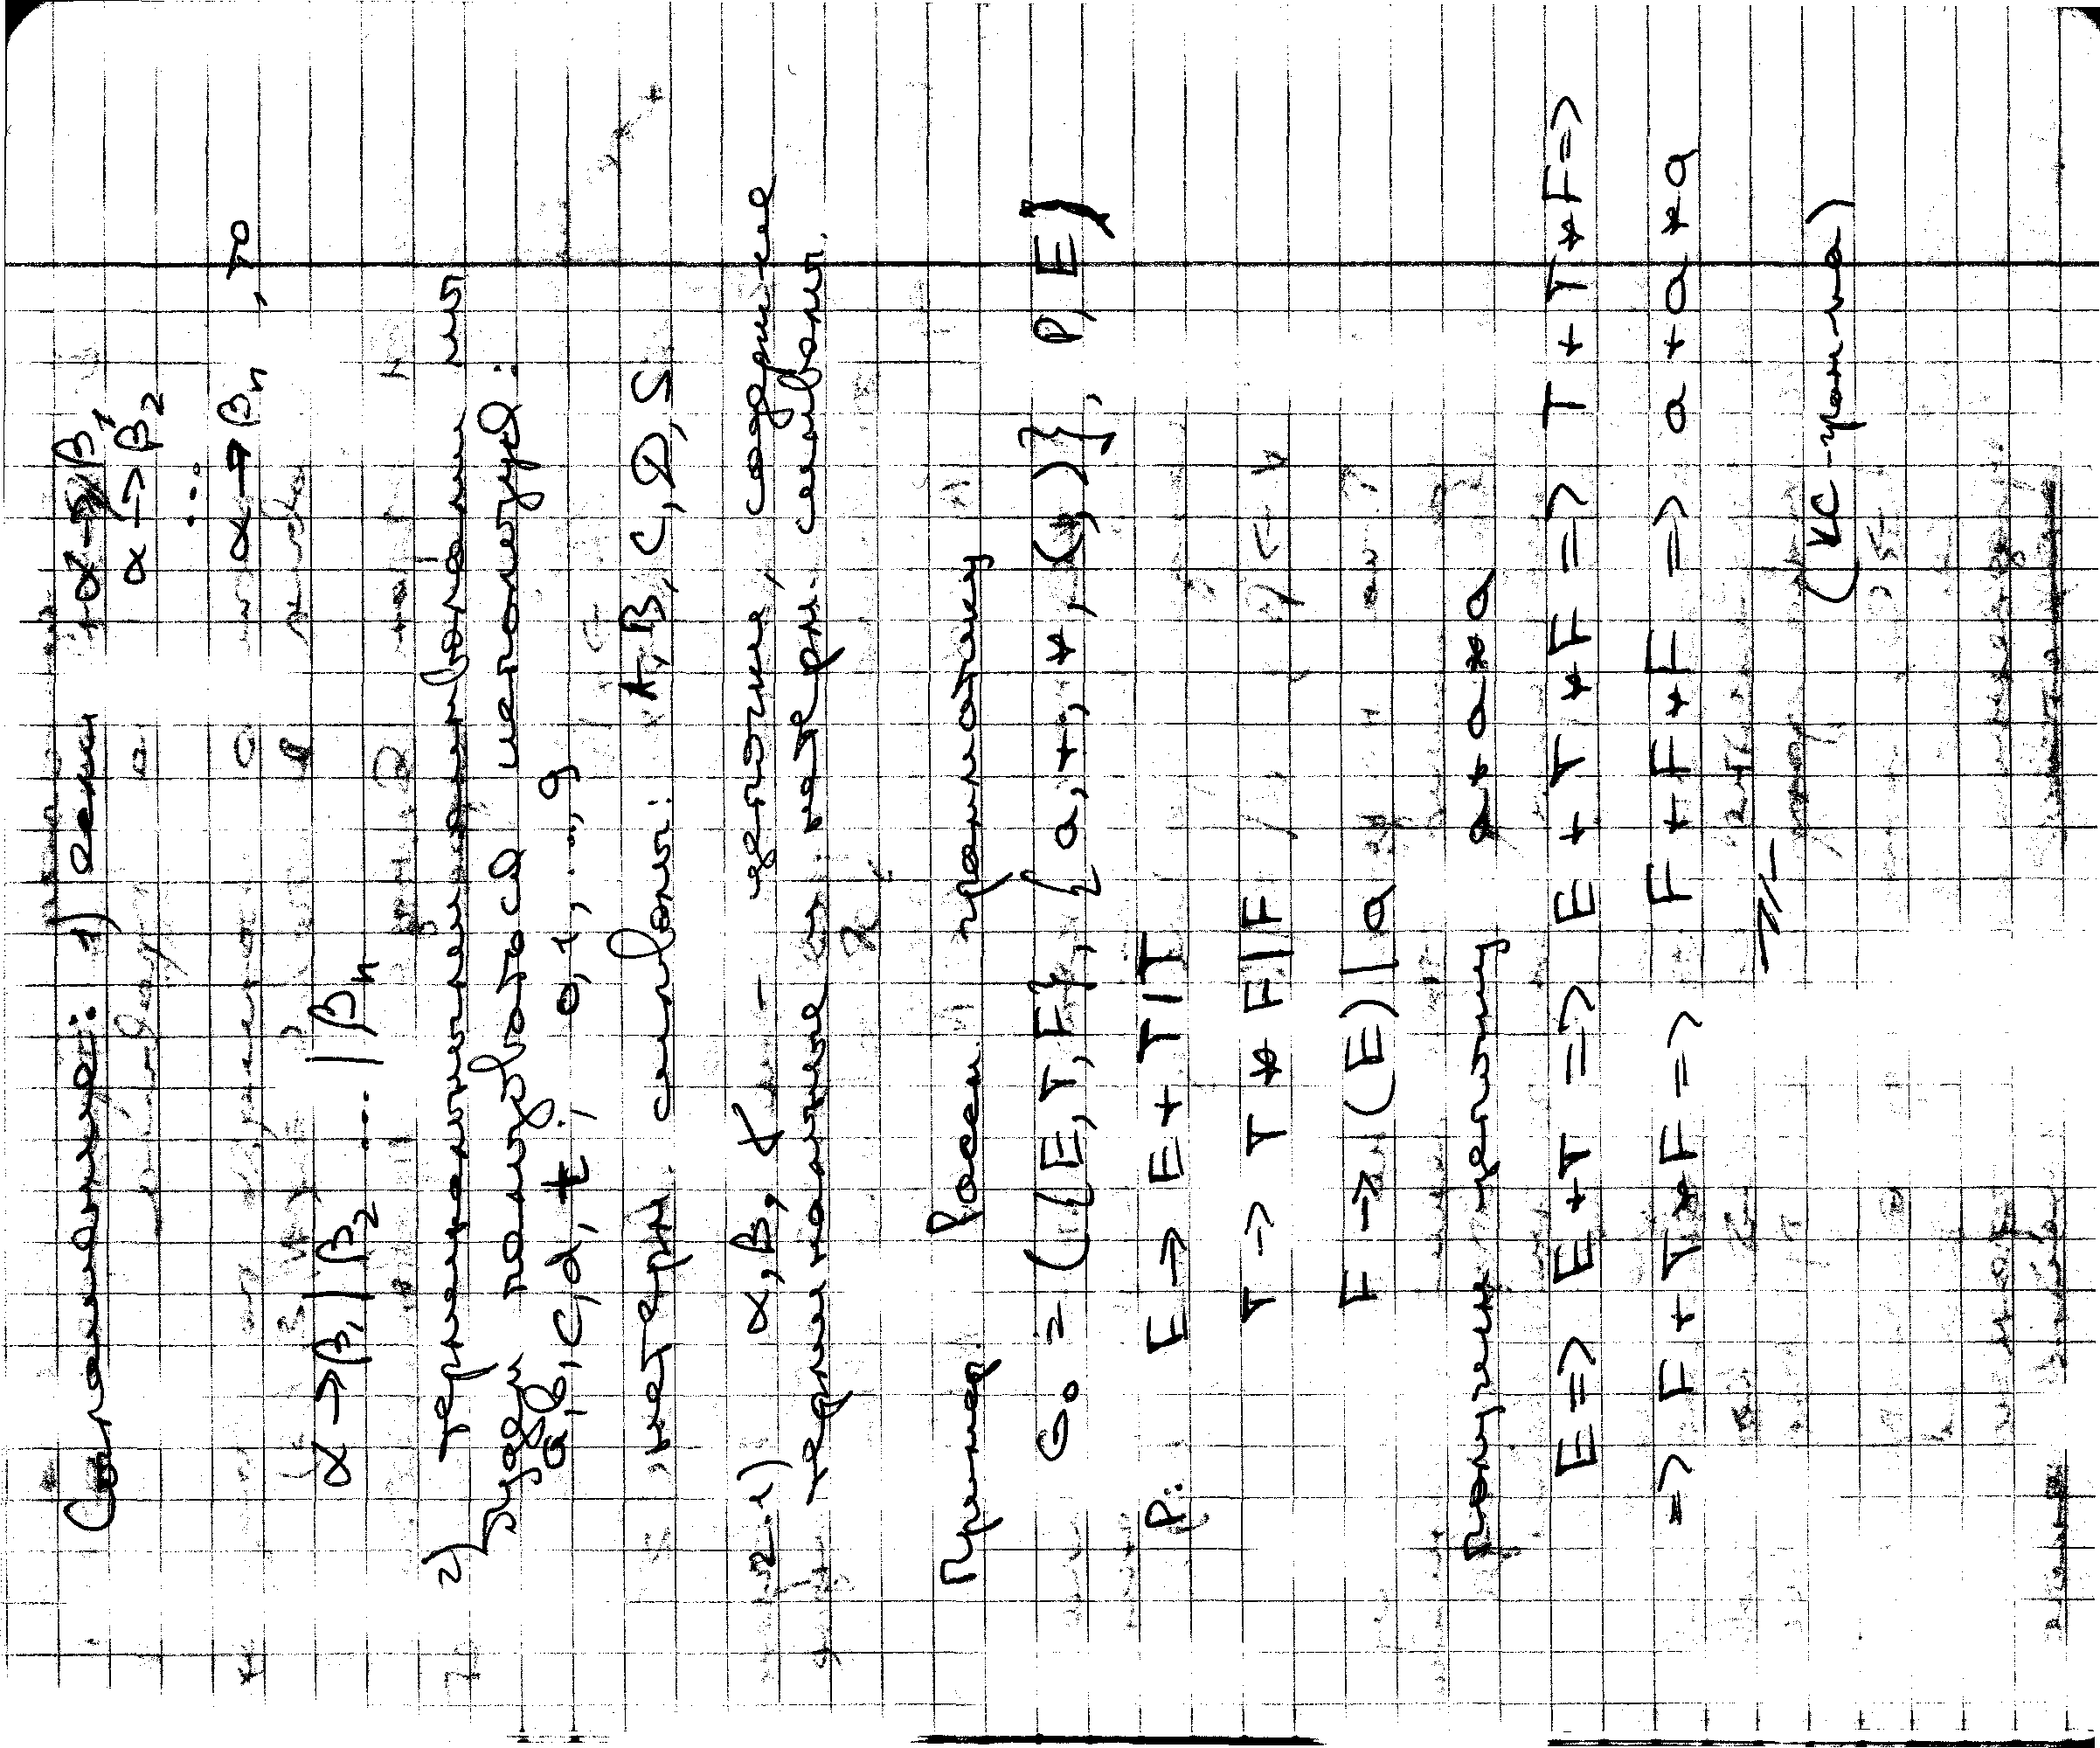 Соглашение: 1) если α→β₁
α→β₂
...
α→βₙ, то
α→β₁|β₂ ... |βₙ
2) терминальными символами мы
будем пользоваться используя:
a, b, c, d, t; 0, 1, ..., 9
нетерм. символы: A, B, C, D, S
2.1) α, β, γ – цепочки, содержащие
терминальные и нетерм. символы.
Пример. Рассм. грамматику
G₀ = ({E, T, F}, {a, +, *, (, )}, P, E)
P: E → E + T|T
T → T * F|F
F → (E)|a
Получим цепочку a + a * a
E => E + T => E + T * F => T + T * F =>
=> F + T * F => F + F * F => a + a * a
(КС-грам-ка)